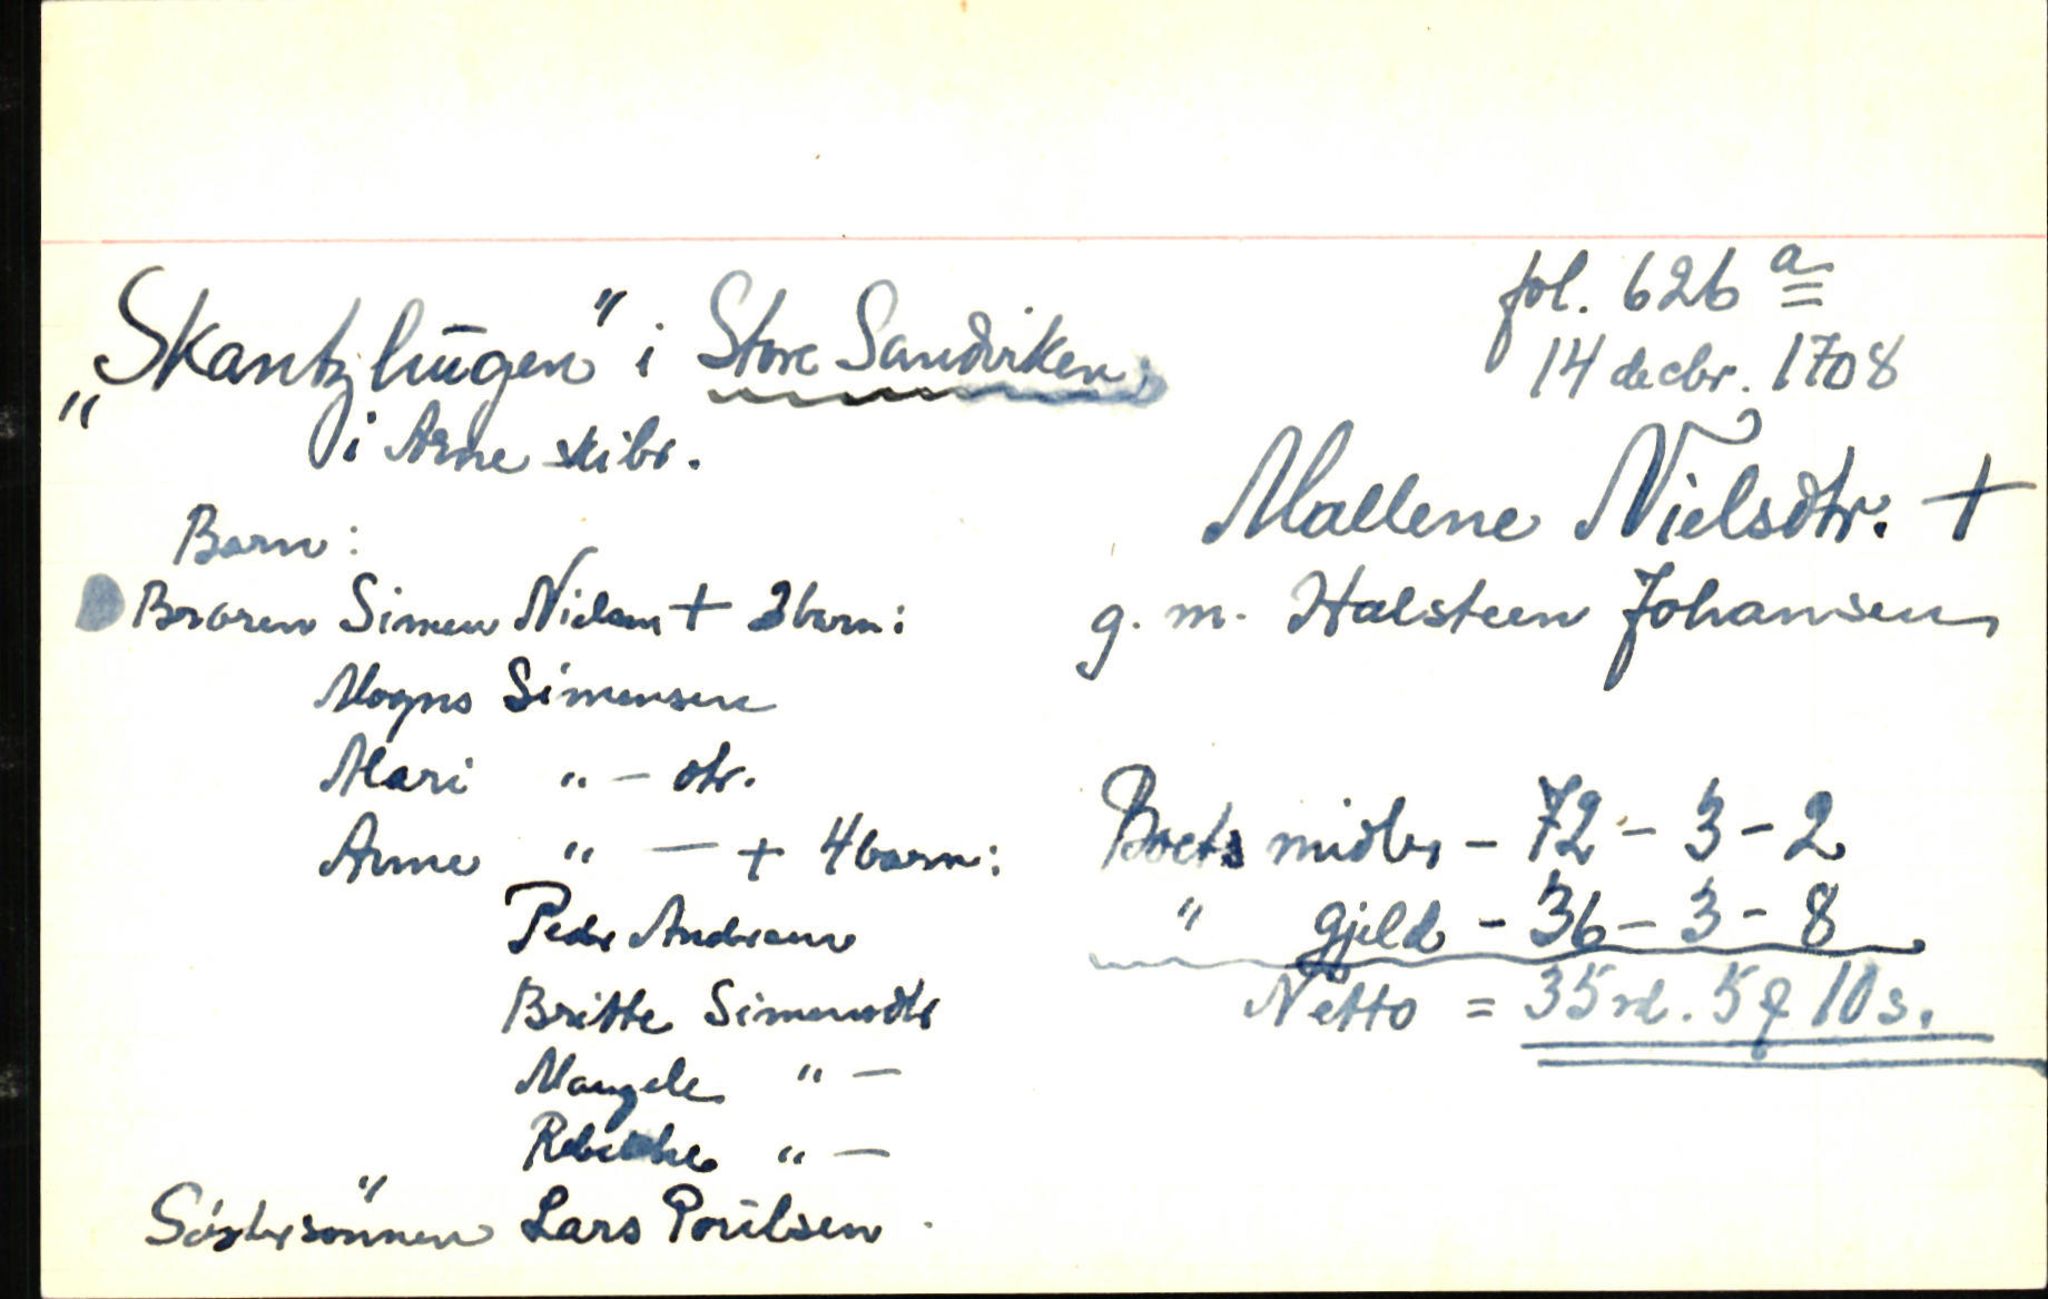 fol. 626 a
14 decbr. 1708
„Skantzhŭgen" i Store Sandviken
i Arne skibr.
Mallene Nielsdtr. +
g. m. Halsteen Johansen
Barn:
Broren Simen Nielsen + 3 barn:
Mogns Simensen
Mari " - dtr.
Anne " — + 4 barn:
Peder Andersen
Britte Simensdtr
" —
" —
Søstersønnen Lars Poŭlsen
Boets midler - 72 - 3 - 2
" gjeld - 36 - 3 - 8
Netto = 35 rd. 5 10 s.